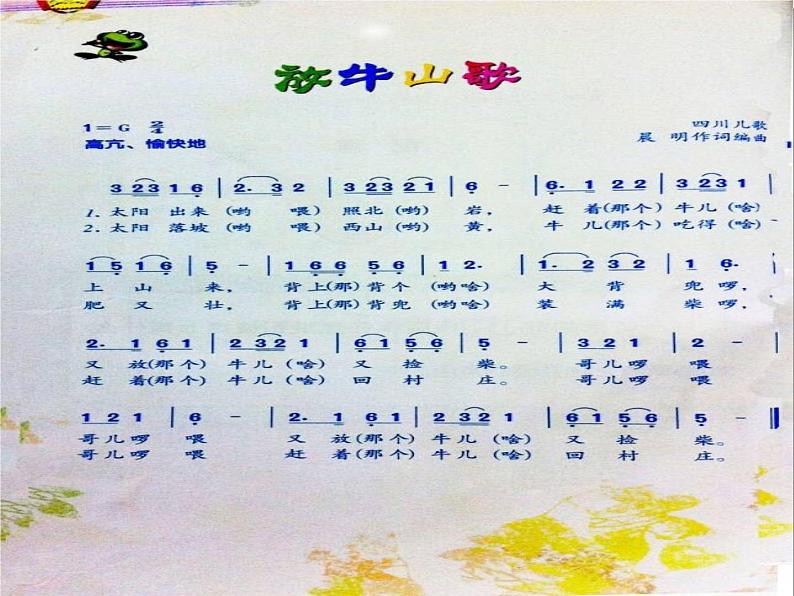 放牛山歌
1=G 2/4
四川儿歌
高亢、愉快地
晨 明作词编曲
3 2 3 1 6 | 2. 3 2 | 3 2 3 2 1 | 6 - | 6. 1 2 2 | 3 2 3 2 1
1.太阳 出来(哟 喂)照北(哟)岩, 赶 着(那个)牛儿(啥)
2.太阳 落坡(哟 喂)西山(哟)黄, 牛 儿(那个)吃得(啥)
1 5 1 6 | 5 - | 1 6 6 5 6 | 1 2. | 1. 2 3 2 | 1 6 2
上 山 来, 背上(那)背个(哟啥)大 背 兜啰,
肥 又 壮, 背上(那)背兜(哟啥)装 满 柴啰,
2. 1 6 1 | 2 3 2 1 | 6 1 5 6 | 5 - | 3 2 3 | 2 -
又 放(那个)牛儿(啥)又 捡 柴。 哥儿啰 喂
赶 着(那个)牛儿(啥)回 村 庄。 哥儿啰 喂
1 2 1 | 6 - | 2. 1 6 1 | 2 3 2 1 | 6 1 5 6 | 5 - ‖
哥儿啰 喂 又 放(那个)牛儿(啥)又 捡 柴。
哥儿啰 喂 赶 着(那个)牛儿(啥)回 村 庄。